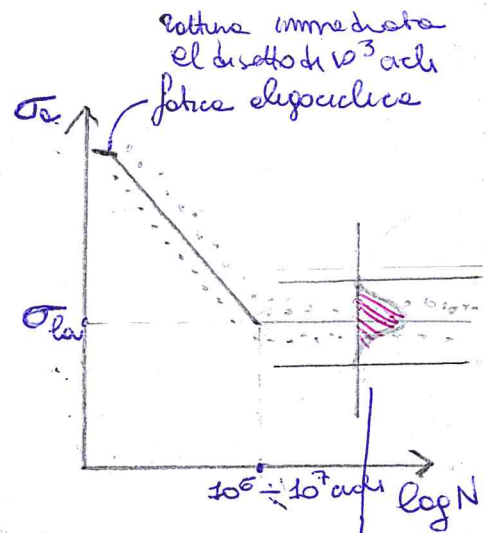 rottura immediata
al disotto di 10³ cicli
fatica oligociclica
σa
σla
10⁶ ÷ 10⁷ cicli
log N